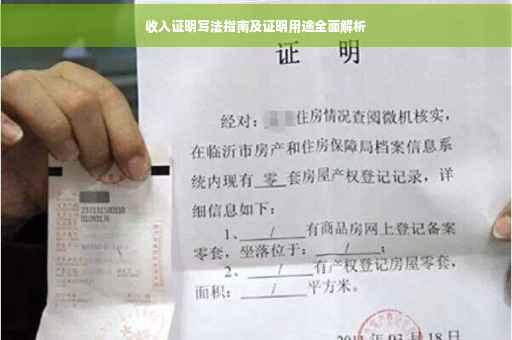 收入证明写法指南及证明用途全面解析
证 明
经对: 住房情况查阅微机核实,
在临沂市房产和住房保障局档案信息系
统内现有 零 套房屋产权登记记录,详
细信息如下:
1、 / 有商品房网上登记备案
零套,坐落位于: / ;
2、 / 有产权登记房屋零套,
面积: / 平方米。
03 月 18 日